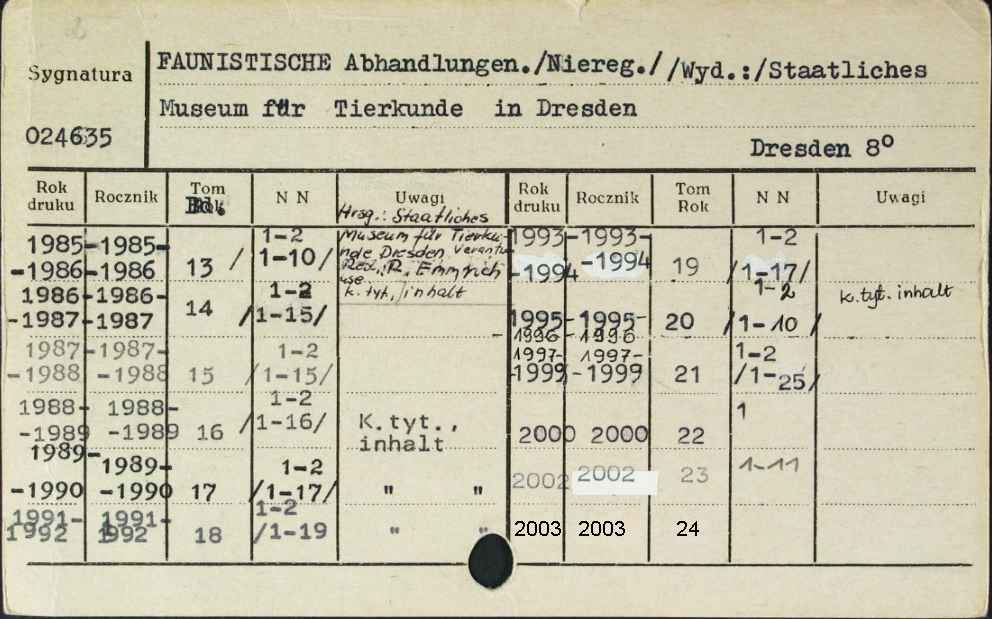 Sygnatura
FAUNISTISCHE Abhandlungen./Niereg.//Wyd.:/Staatliches
Museum für Tierkunde in Dresden
024635
Dresden 8°
Rok druku Rocznik Tom Rok Bd. N N Uwagi Rok druku Rocznik Tom Rok N N Uwagi
Hrsg.: Staatliches
Museum für Tierku-
nde Dresden Verantw.
Red., R. Emmrich
k. tyt., inhalt
1985- 1985- 1-2
-1986 -1986 13 /1-10/
1986- 1986- 1-2
-1987 -1987 14 /1-15/
1987- 1987- 1-2
-1988 -1988 15 /1-15/
1988- 1988- 1-2
-1989 -1989 16 /1-16/ K.tyt.,
inhalt
1989- 1989- 1-2
-1990 -1990 17 /1-17/ " "
1991- 1991- 1-2
1992 1992 18 /1-19 " "
1993- 1993- 1-2
-1994 -1994 19 /1-17/
1-2 k.tyt. inhalt
1995- 1995- 20 /1-10/
1996 -1996
1997- 1997- 1-2
-1999 -1999 21 /1-25/
1
2000 2000 22
2002 2002 23 1-11
2003 2003 24